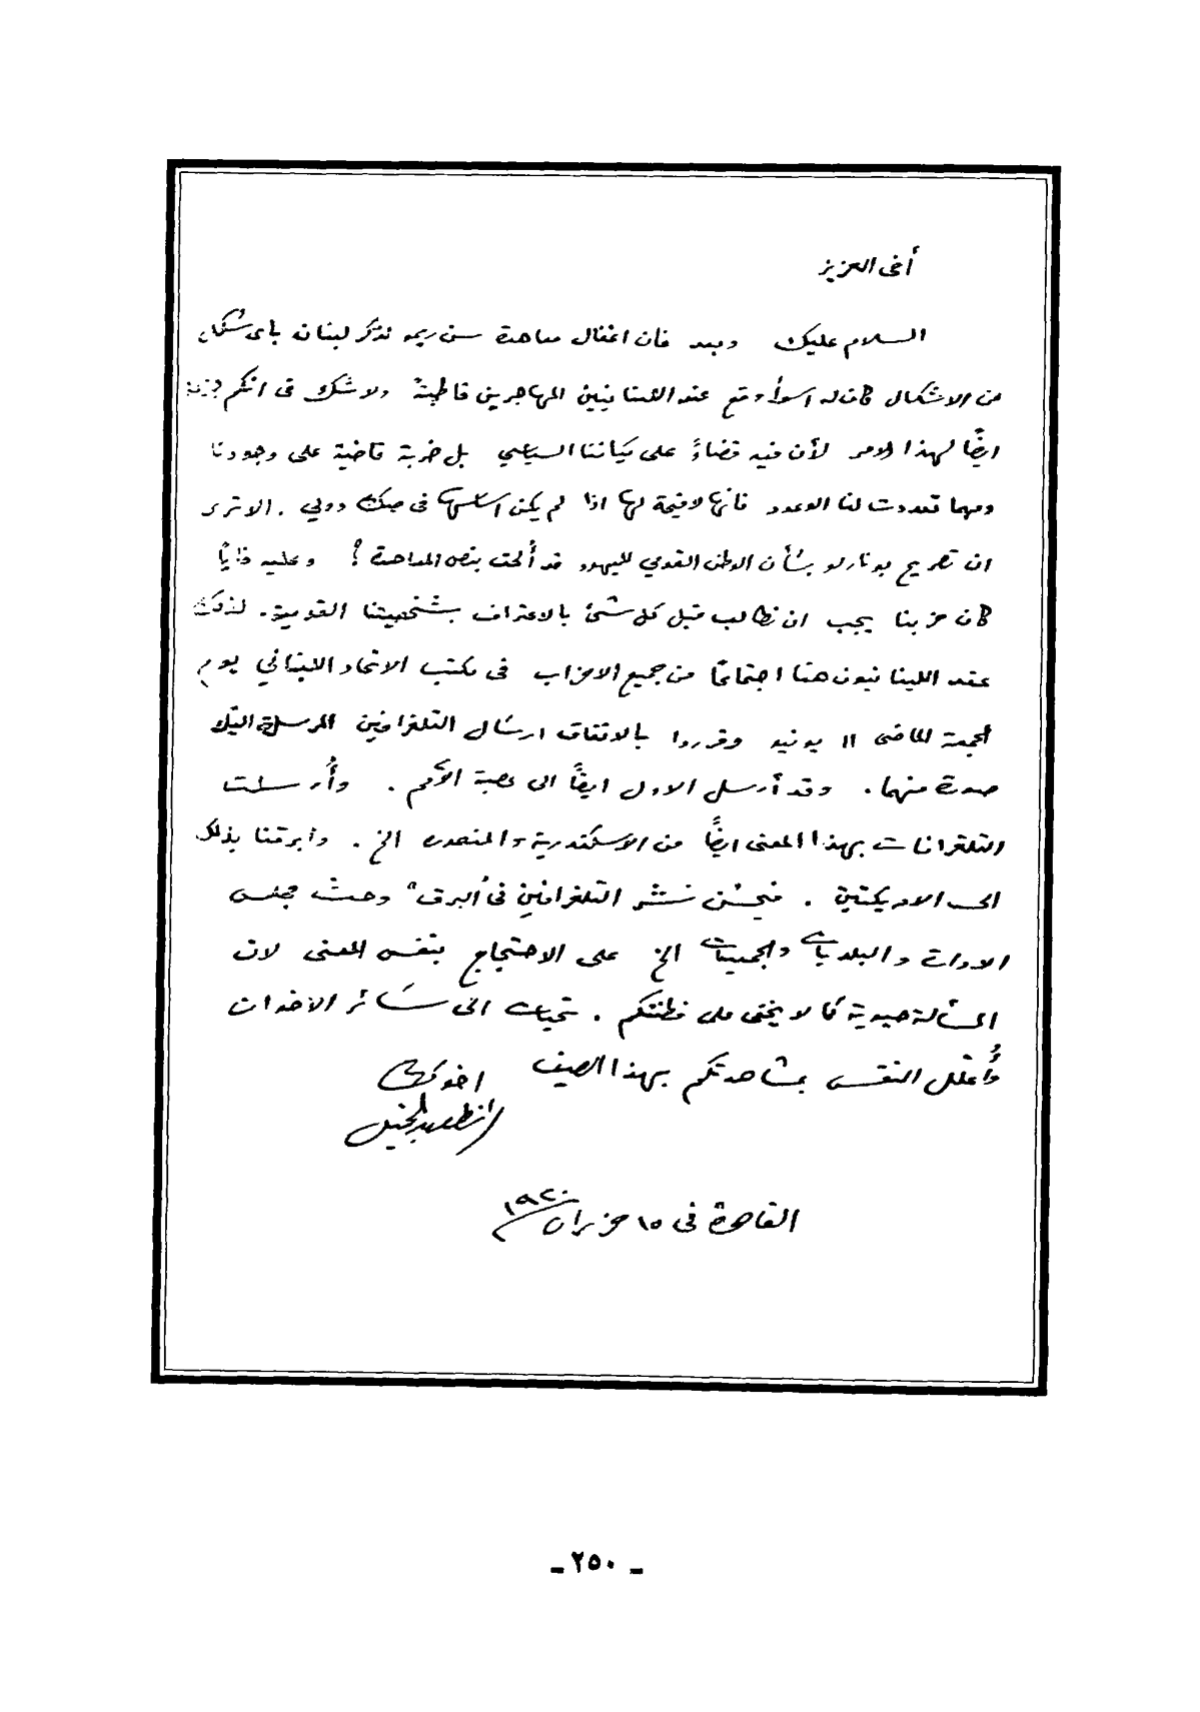 أخي العزيز
السلام عليك وبعد فان اغفال معاهدة سن ريمو لذكر لبنان باي شكل
من الاشكال كان له اسوأ وقع عند اللبنانيين المهاجرين قاطبة ولا شك في انكم
ايضًا لهذا الامر لأن فيه قضاءً على كياننا السياسي بل ضربة قاضية على وجودنا
ومهما تعددت لنا الوعود فانها لا قيمة لها اذا لم يكن اساسها في صك دولي . الا ترى
ان تصريح بونار لو بشأن الوطن القومي لليهود قد أُلحق بنص المعاهدة ؟ وعليه
كان حزبنا يجب ان نطالب قبل كل شئ بالاعتراف بشخصيتنا القومية . لذلك
عقد اللبنانيون هنا اجتماعًا من جميع الاحزاب في مكتب الاتحاد اللبناني يوم
الجمعة الماضي ١١ يونيو وقرروا بالاتفاق ارسال التلغرافين المرسلة اليك
صورة منهما . وقد أُرسل الاول ايضًا الى عصبة الأمم . وأُرسلت
التلغرافات بهذا المعنى ايضًا من الاسكندرية والمنصورة الخ . وابرقنا بذلك
الى الاميركتين . فيحسن نشر التلغرافين في "البرق" وحث مجلس
الادارة والبلديات والجمعيات الخ على الاحتجاج بنفس المعنى لان
المسألة حيوية كما لا يخفى على فطنتكم . تحياتي الى سائر الاخوان
وأُعلل النفس بمشاهدتكم بهذا الصيف اخوك
انطون الجميل
القاهرة في ١٥ حزيران ١٩٢٠
ـ ٢٥٠ ـ